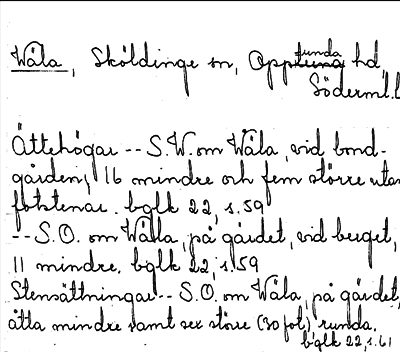 Wåla, Sköldinge sn, Oppunda hd,
Söderml.l
Ättehögar -- S.W. om Wåla, vid bond-
gården, 16 mindre och fem större utan
fotstenar. bglk 22, s.59
-- S.O. om Wålla, på gärdet, vid berget,
11 mindre. bglk 22, s.59
Stensättningar -- S.O. om Wåla, på gärdet,
åtta mindre samt sex större (30 fot) runda.
bglk 22, s.61